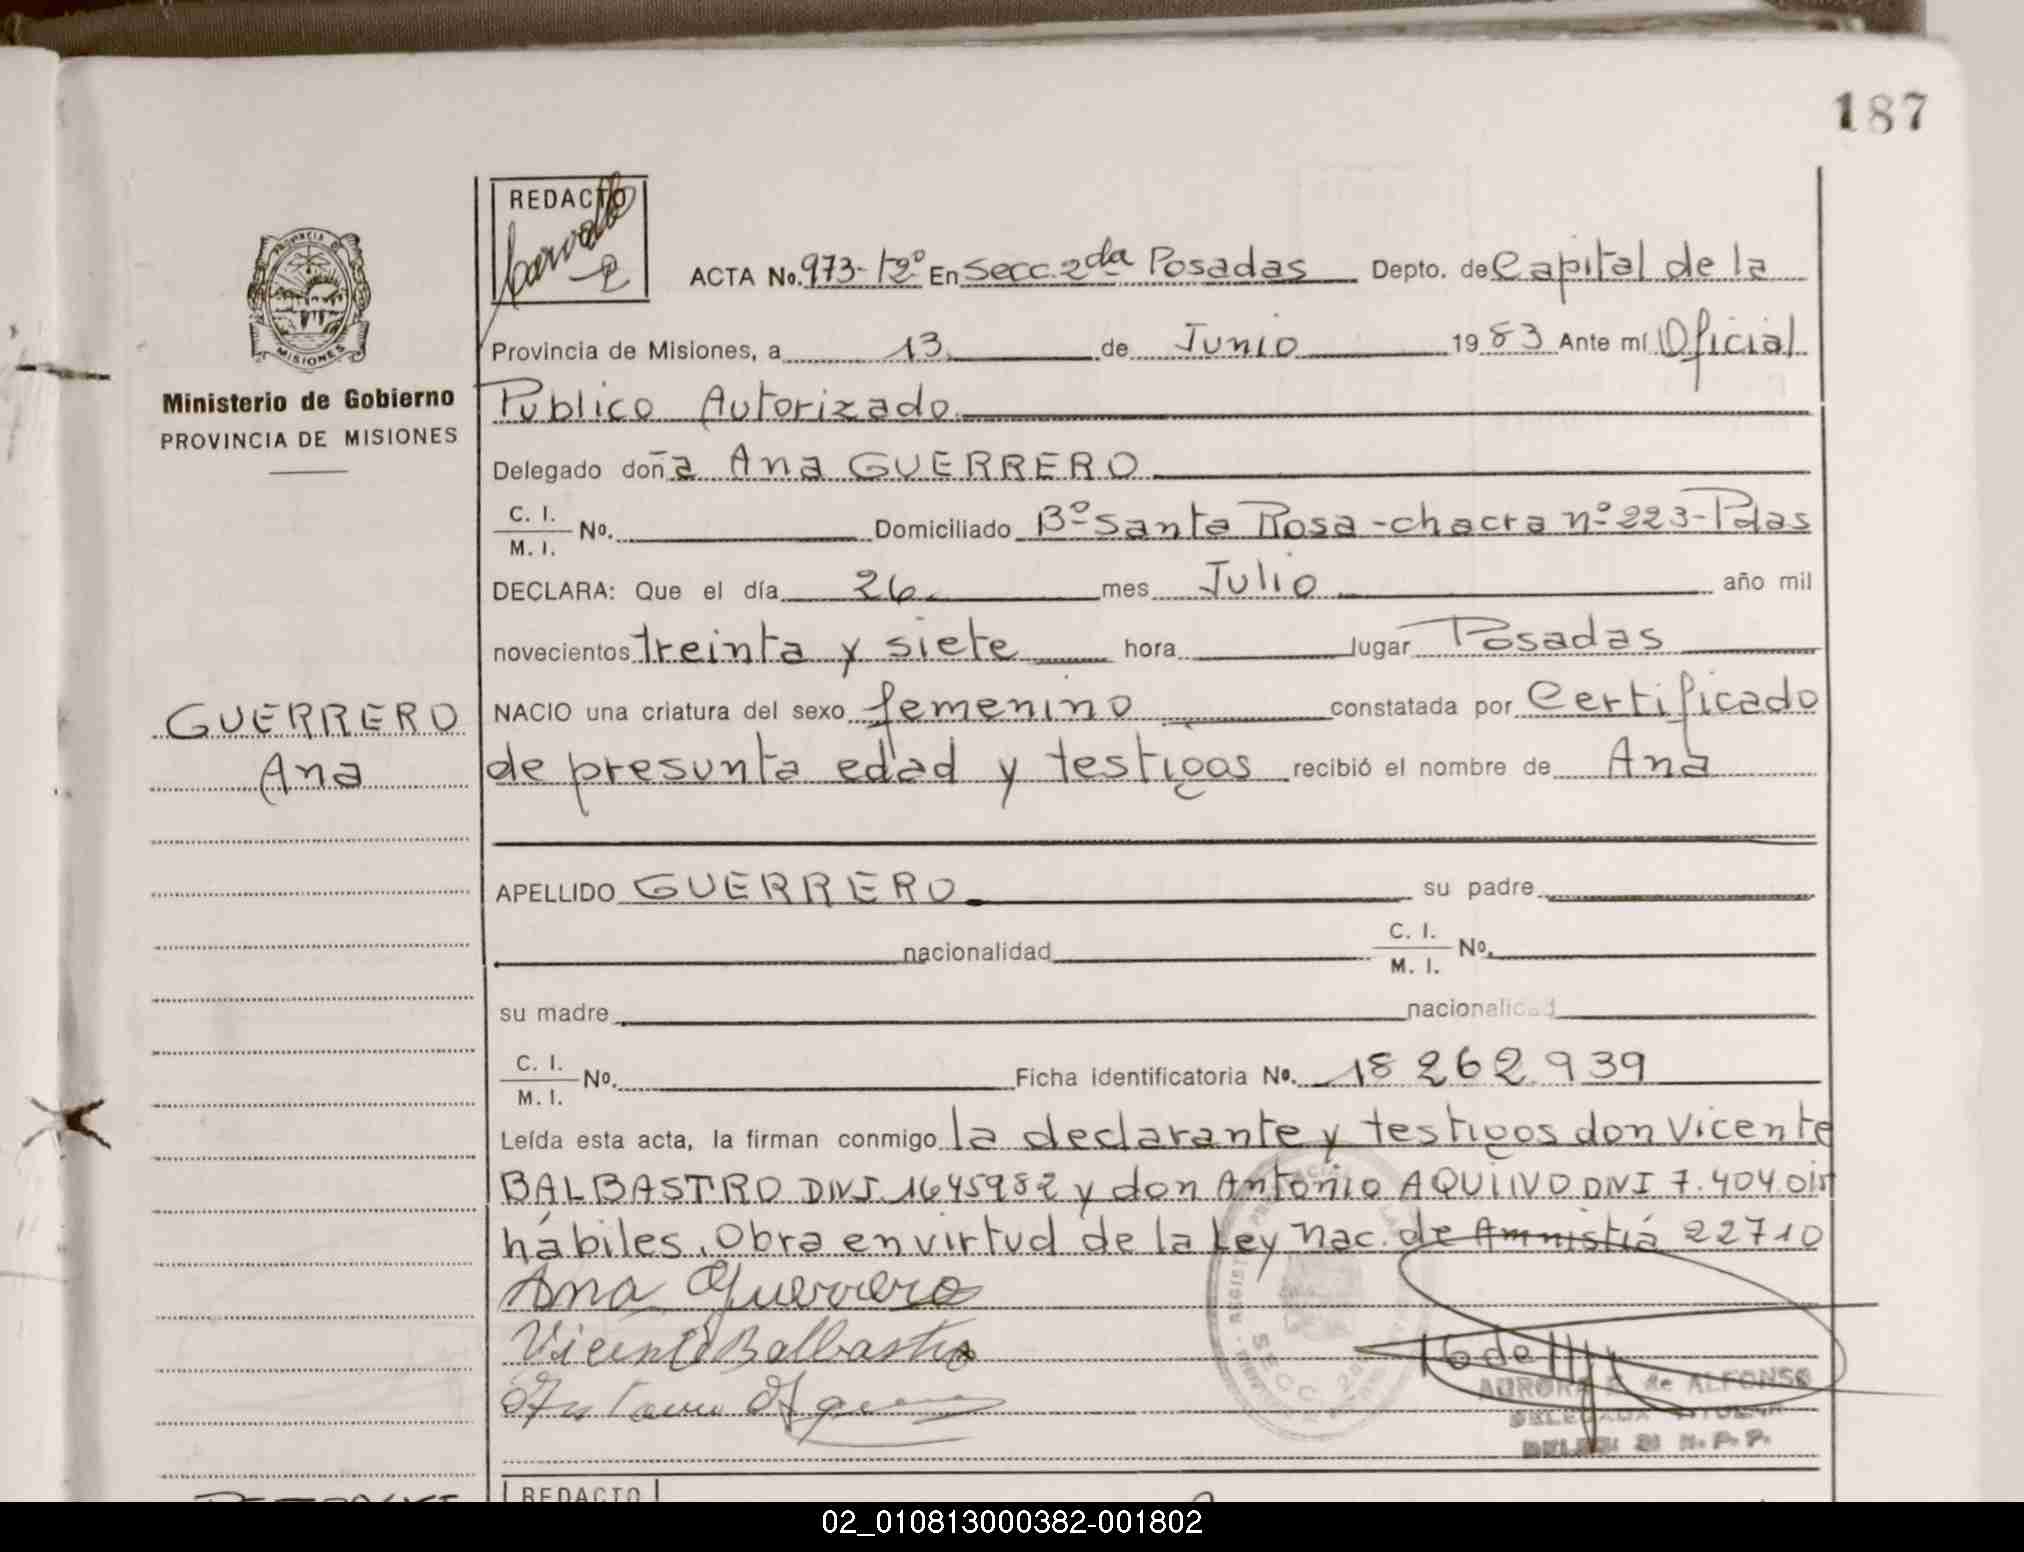 187
REDACTO
ACTA No. 973-T2º En Secc. 2da Posadas Depto. de Capital de la
Provincia de Misiones, a 13 de Junio 1983 Ante mí Oficial
Publico Autorizado
Delegado doña Ana GUERRERO
C. I.
M. I.
No. Domiciliado Bº Santa Rosa - chacra nº 223 - Pdas
DECLARA: Que el día 26 mes Julio año mil
novecientos treinta y siete hora lugar Posadas
NACIO una criatura del sexo femenino constatada por Certificado
de presunta edad y testigos recibió el nombre de Ana
APELLIDO GUERRERO su padre
nacionalidad C. I.
M. I. No.
su madre nacionalidad
C. I.
M. I.
No. Ficha identificatoria No. 18 262 939
Leída esta acta, la firman conmigo la declarante y testigos don Vicente
BALBASTRO DNI 1645982 y don Antonio AQUINO DNI 7.404.
hábiles. Obra en virtud de la Ley Nac. de Amnistía 22710
Ana Guerrero
Vicente Balbastro
AURORA de ALFONSO
MISIONES
Ministerio de Gobierno
PROVINCIA DE MISIONES
GUERRERO
Ana
REDACTO
02_010813000382-001802